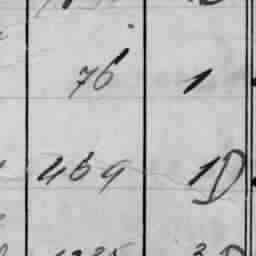 76 1
469 1D